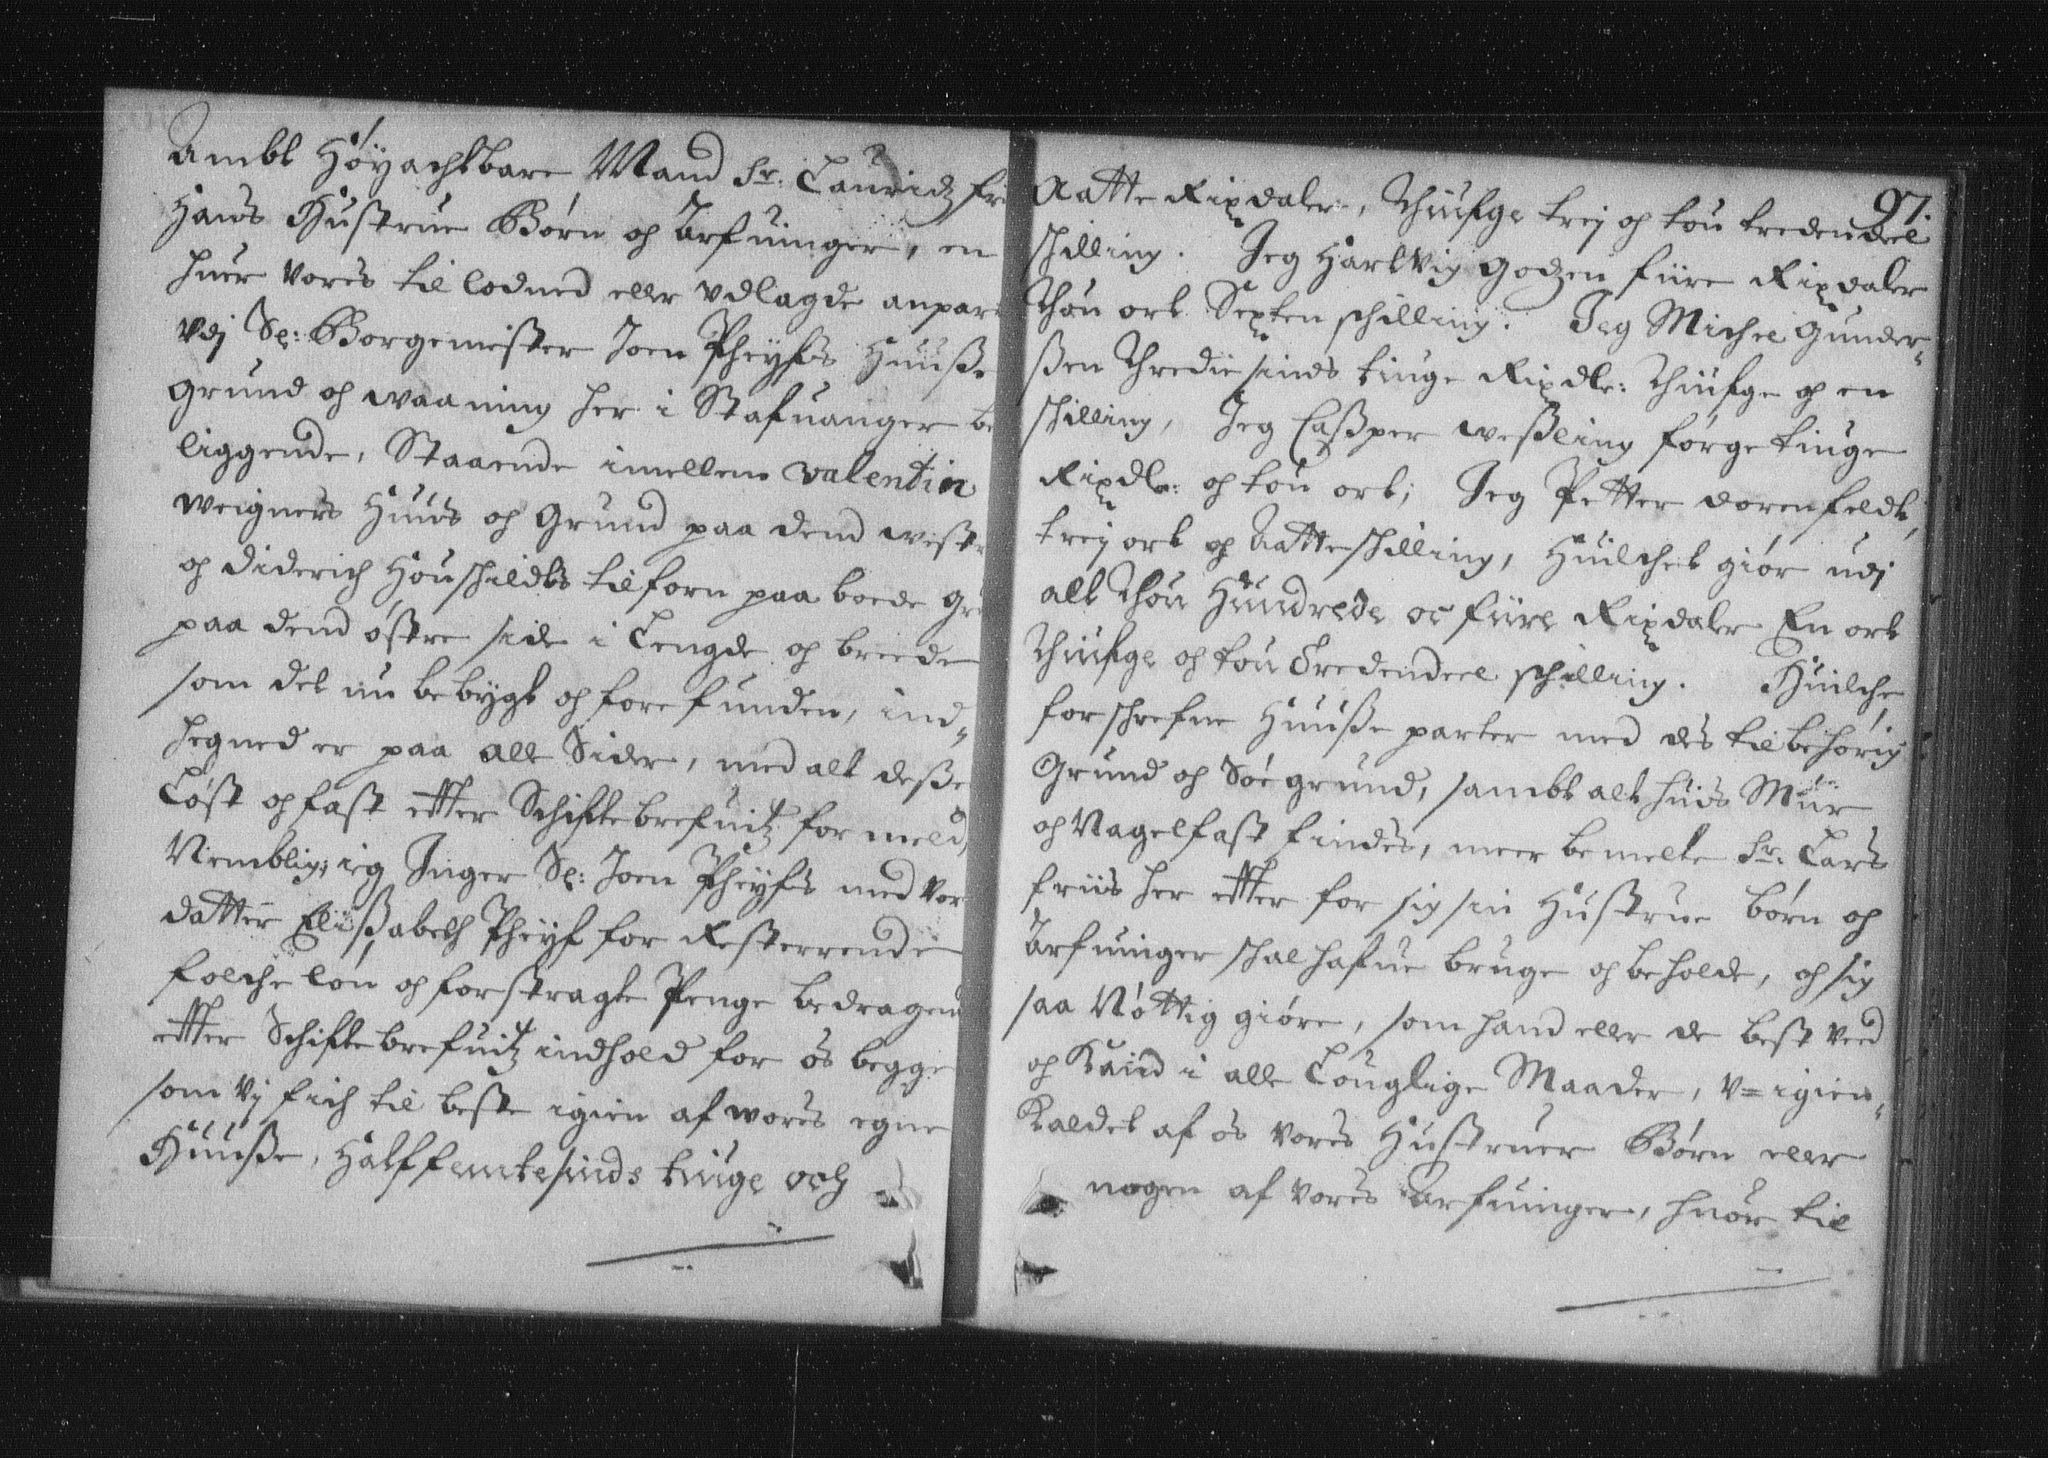 Ambt Höyachtbare Mand Sr: Lauridz fri
Hans Hustrue Børn og Arfuinger, en
huer vores til lodned eller udlagde anpar
udj Sl: Borgemester Joen Pheyfs Huuße
grund og waaning her i Stafuanger be
liggende, Staaende imellem Valentin
Weigners Huus og Grund paa dend westre
og Diderich Houschildts tilforn paa boede Gru
paa dend østre side i Lengde og breede
som det nu bebygt og forefunden, ind-
hegned er paa alle Sider, med alt deße
Løst og fast etter Schiftebrefuitz formeld,
Nemblig; ieg Inger Sl: Joen Pheyfs med vor
datter Elißabeth Pheyf for Resterrende
folche løn og forstragte Penge bedragend
etter Schiftebrefuitz indhold for os begge
som vj fich til beste igien af wores egne
Huuße, Halffemtesinds tiuge och
97.
Aatte Rixdaler, Thiufge trej og tou tredendeel
schilling. Jeg Hartvig Godzen fiire Rixdaler
Thou ort Sexten schilling. Jeg Michel Gunder-
ßen Thredie sinds tiuge Rixdlr: Thiufge og en
schilling, Jeg Caßper Weßling førge tiuge
Rixdlr: og tou ort; Jeg Petter Dorenfeldt,
trej ort og Aatte schilling, Huilchet giør udj
alt Thou Hundrede oc fiire Rixdaler En ort
Thiufge og tou Tredendeel schilling. Huilche
forschrefne Huuße parter med des tilbehørig
Grund og Søe grund, sambt alt huis Muur
og Nagelfast findes, meer bemelte Sr: Lars
friis her etter for sig sin Hustrue børn og
Arfuinger schal hafue bruge og beholde, og sig
saa Nøttig giøre, som hand eller de best veed
og Kaand i alle Louglige Maader, v=igien-
Kaldet af os vores Hustruer Børn eller
nogen af vores Arfuinger, huor til